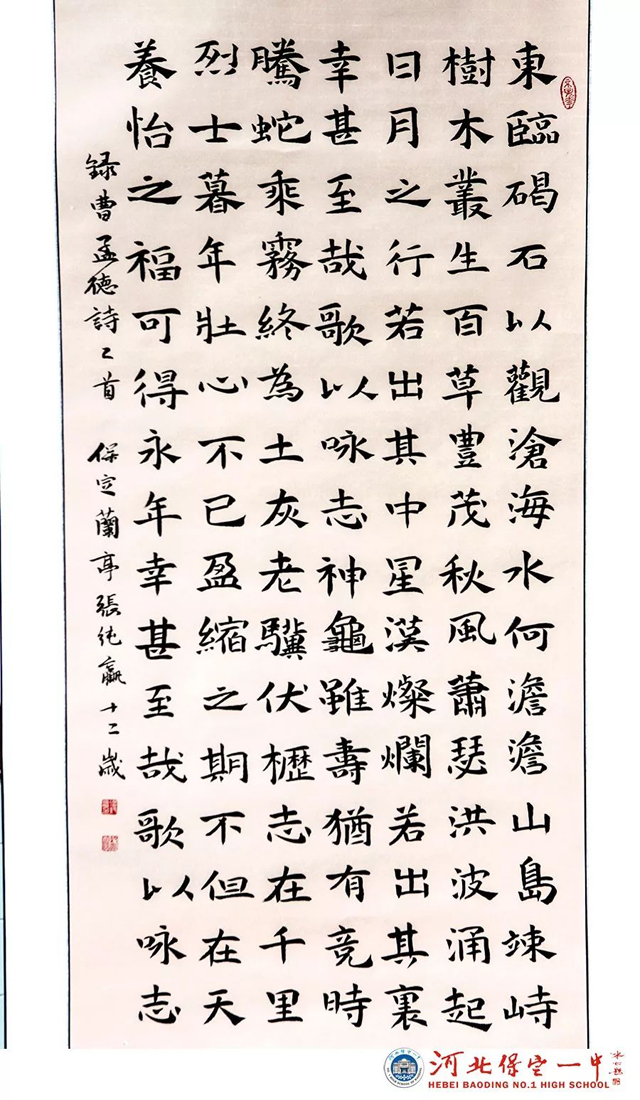 東臨碣石以觀滄海水何澹澹山島竦峙
樹木叢生百草豐茂秋風蕭瑟洪波涌起
日月之行若出其中星漢燦爛若出其裏
幸甚至哉歌以咏志神龜雖壽猶有竟時
騰蛇乘霧終為土灰老驥伏櫪志在千里
烈士暮年壯心不已盈縮之期不但在天
養怡之福可得永年幸甚至哉歌以咏志
録曹孟德詩二首 保定蘭亭張純嬴十二歲
河北保定一中
HEBEI BAODING NO.1 HIGH SCHOOL